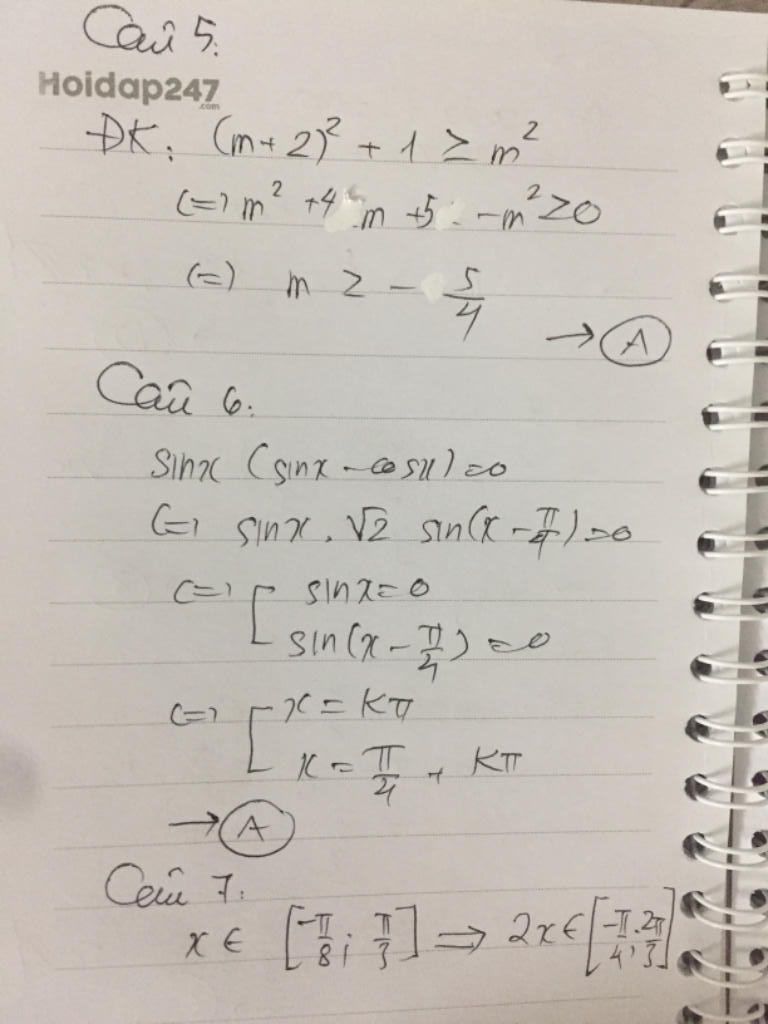 Câu 5:
Hoidap247
.com
ĐK: (m+2)² + 1 ≥ m²
(=) m² +4 m +5 - m² ≥ 0
(=) m ≥ - 5/4
→ A
Câu 6:
sinx (sinx - cosx) = 0
(=) sinx . √2 sin(x - π/4) = 0
(=) [ sinx = 0
sin(x - π/4) = 0
(=) [ x = kπ
x = π/4 + kπ
→ A
Câu 7:
x ∈ [-π/8 ; π/3] => 2x ∈ [-π/4 ; 2π/3]